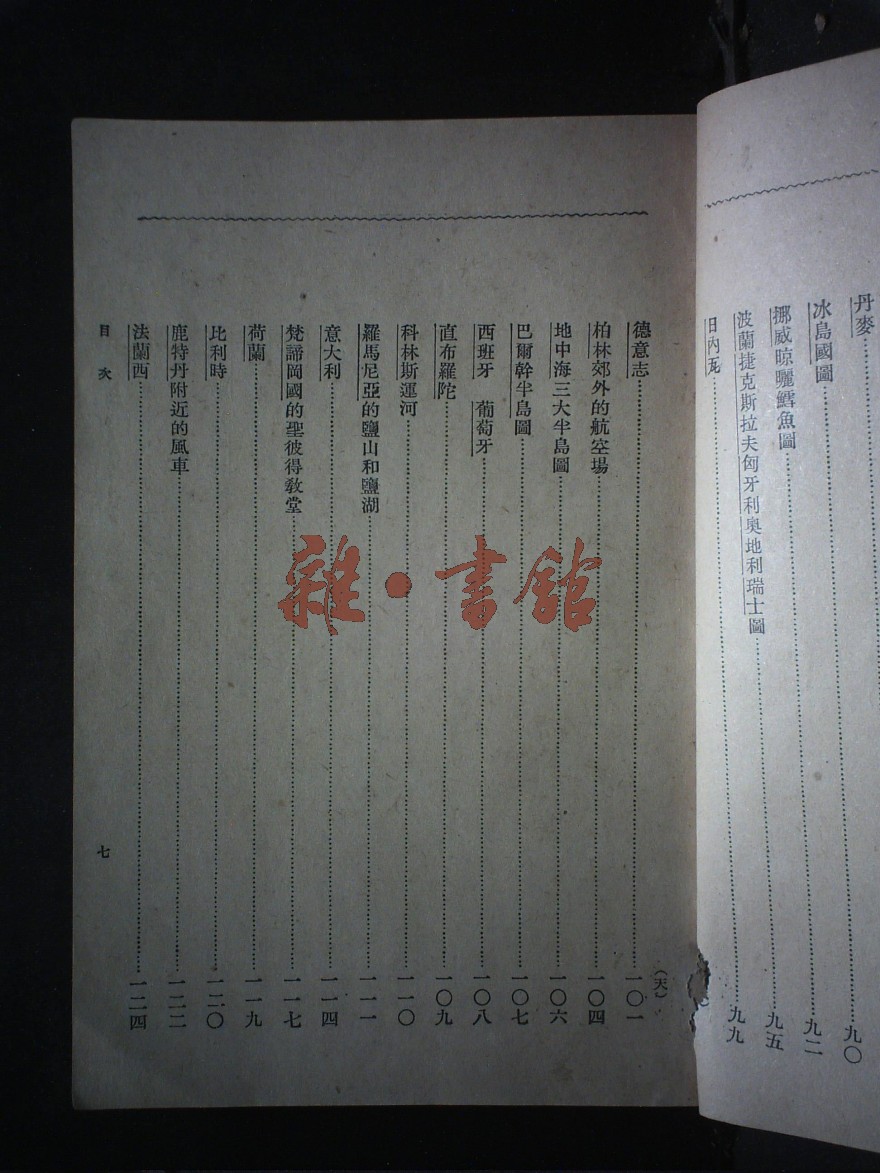 丹麥……九〇
冰島國圖……九二
挪威晾曬鱈魚圖……九五
波蘭捷克斯拉夫匈牙利奧地利瑞士圖
日內瓦……九九
(天)
德意志……一〇一
柏林郊外的航空場……一〇四
地中海三大半島圖……一〇六
巴爾幹半島圖……一〇七
西班牙 葡萄牙……一〇八
直布羅陀……一〇九
科林斯運河……一一〇
羅馬尼亞的鹽山和鹽湖……一一一
意大利……一一四
梵諦岡國的聖彼得教堂……一一七
荷蘭……一一九
比利時……一二〇
鹿特丹附近的風車……一二二
法蘭西……一二四
目次
七
雜·書館